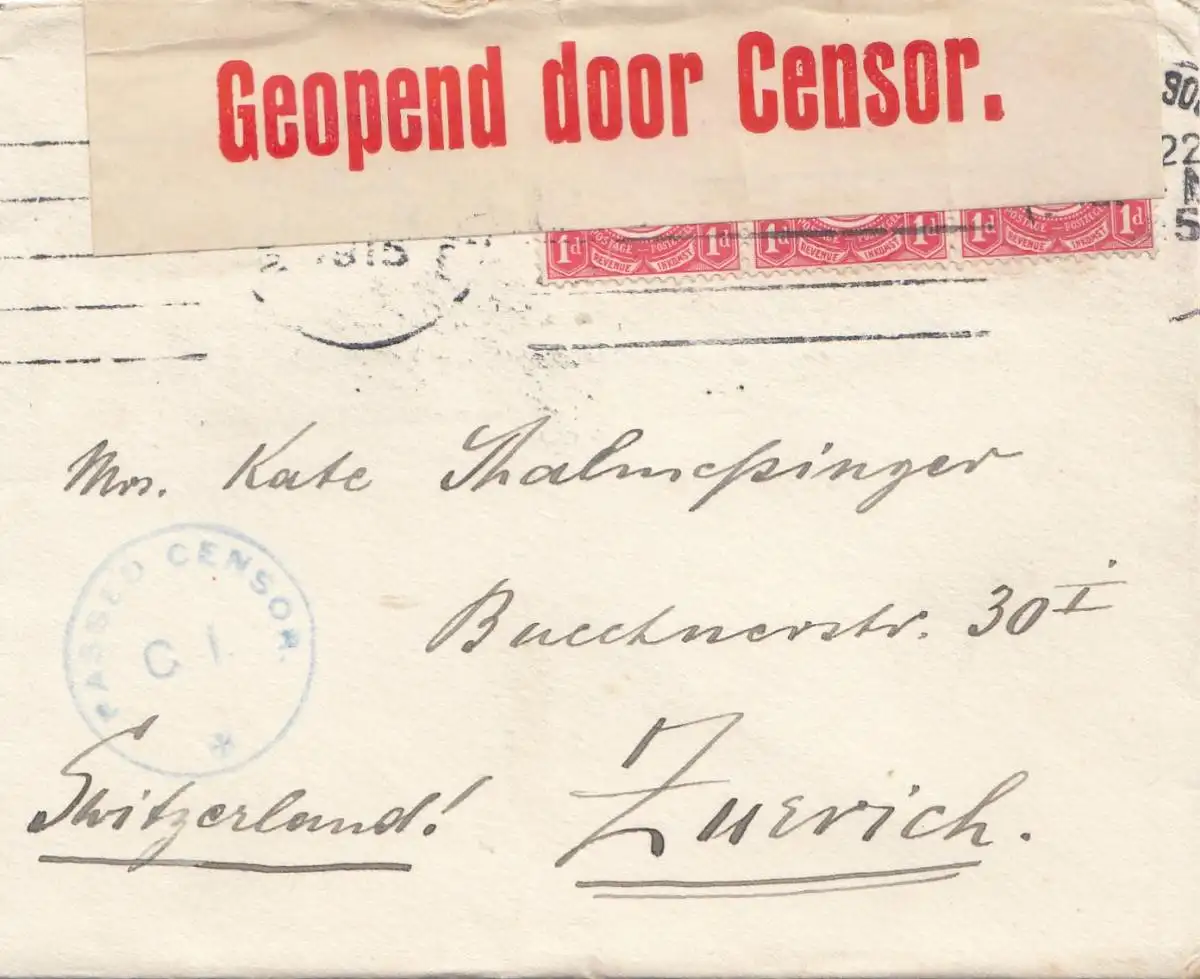 Geopend door Censor.
90
22
5
1915
1d POSTAGE POSTZEGEL REVENUE INKOMST 1d
1d POSTAGE POSTZEGEL REVENUE INKOMST 1d
1d POSTAGE POSTZEGEL REVENUE INKOMST 1d
Mrs. Kate Thalmessinger
PASSED CENSOR.
C 1.
Buechnerstr. 30 I
Switzerland!
Zuerich.